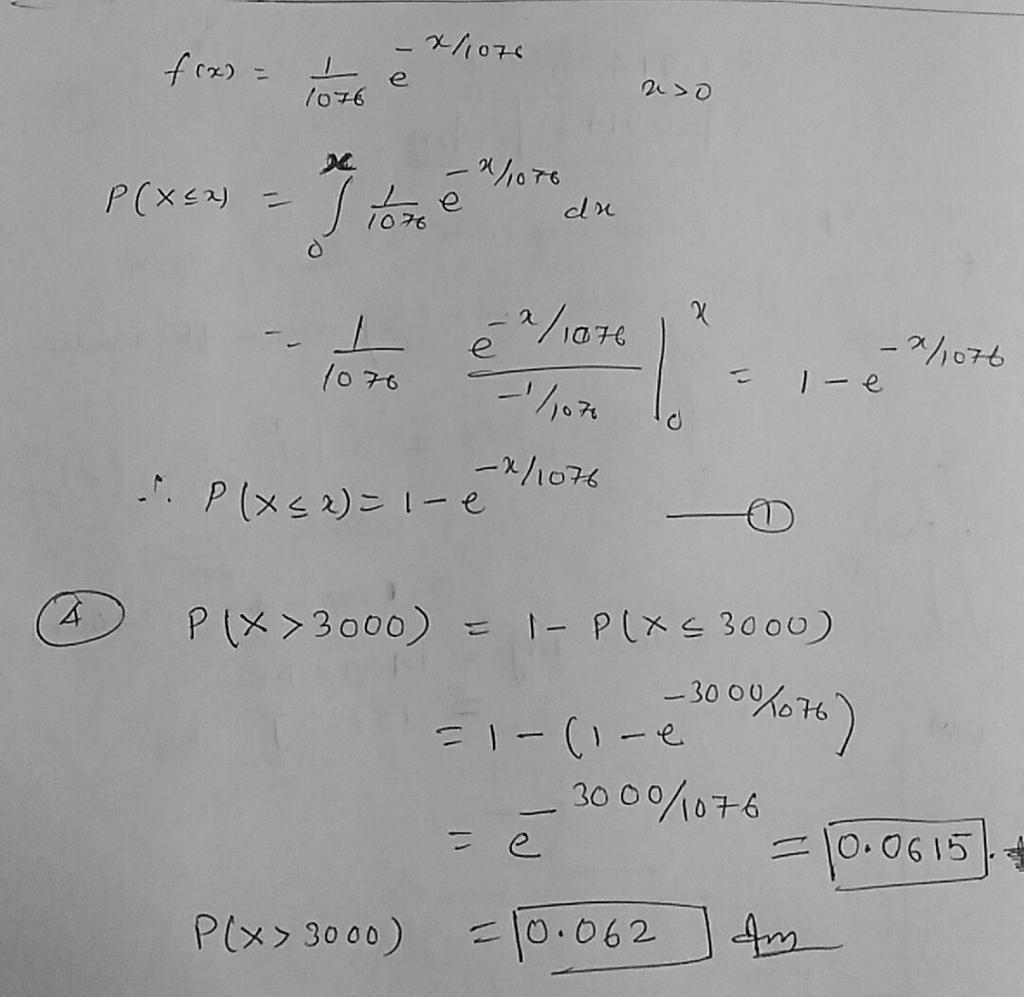 f(x) = 1/1076 e^{-x/1076} x>0
P(X≤x) = ∫_0^x 1/1076 e^{-x/1076} dx
= 1/1076 e^{-x/1076} / -1/1076 |_0^x = 1-e^{-x/1076}
∴ P(X≤x)=1-e^{-x/1076} ——①
P(X>3000) = 1-P(X≤3000)
=1-(1-e^{-3000/1076})
= e^{-3000/1076} = 0.0615.
P(X>3000) = 0.062 Ans